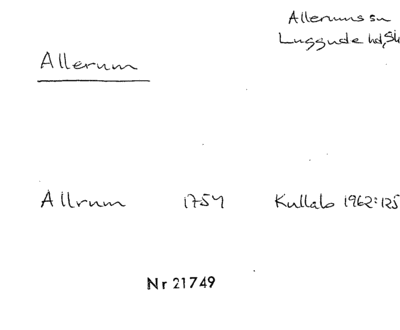 Allerums sn
Luggude hd, Sk
Allerum
Allrum 1754 Kullabo 1962:125
Nr 21749